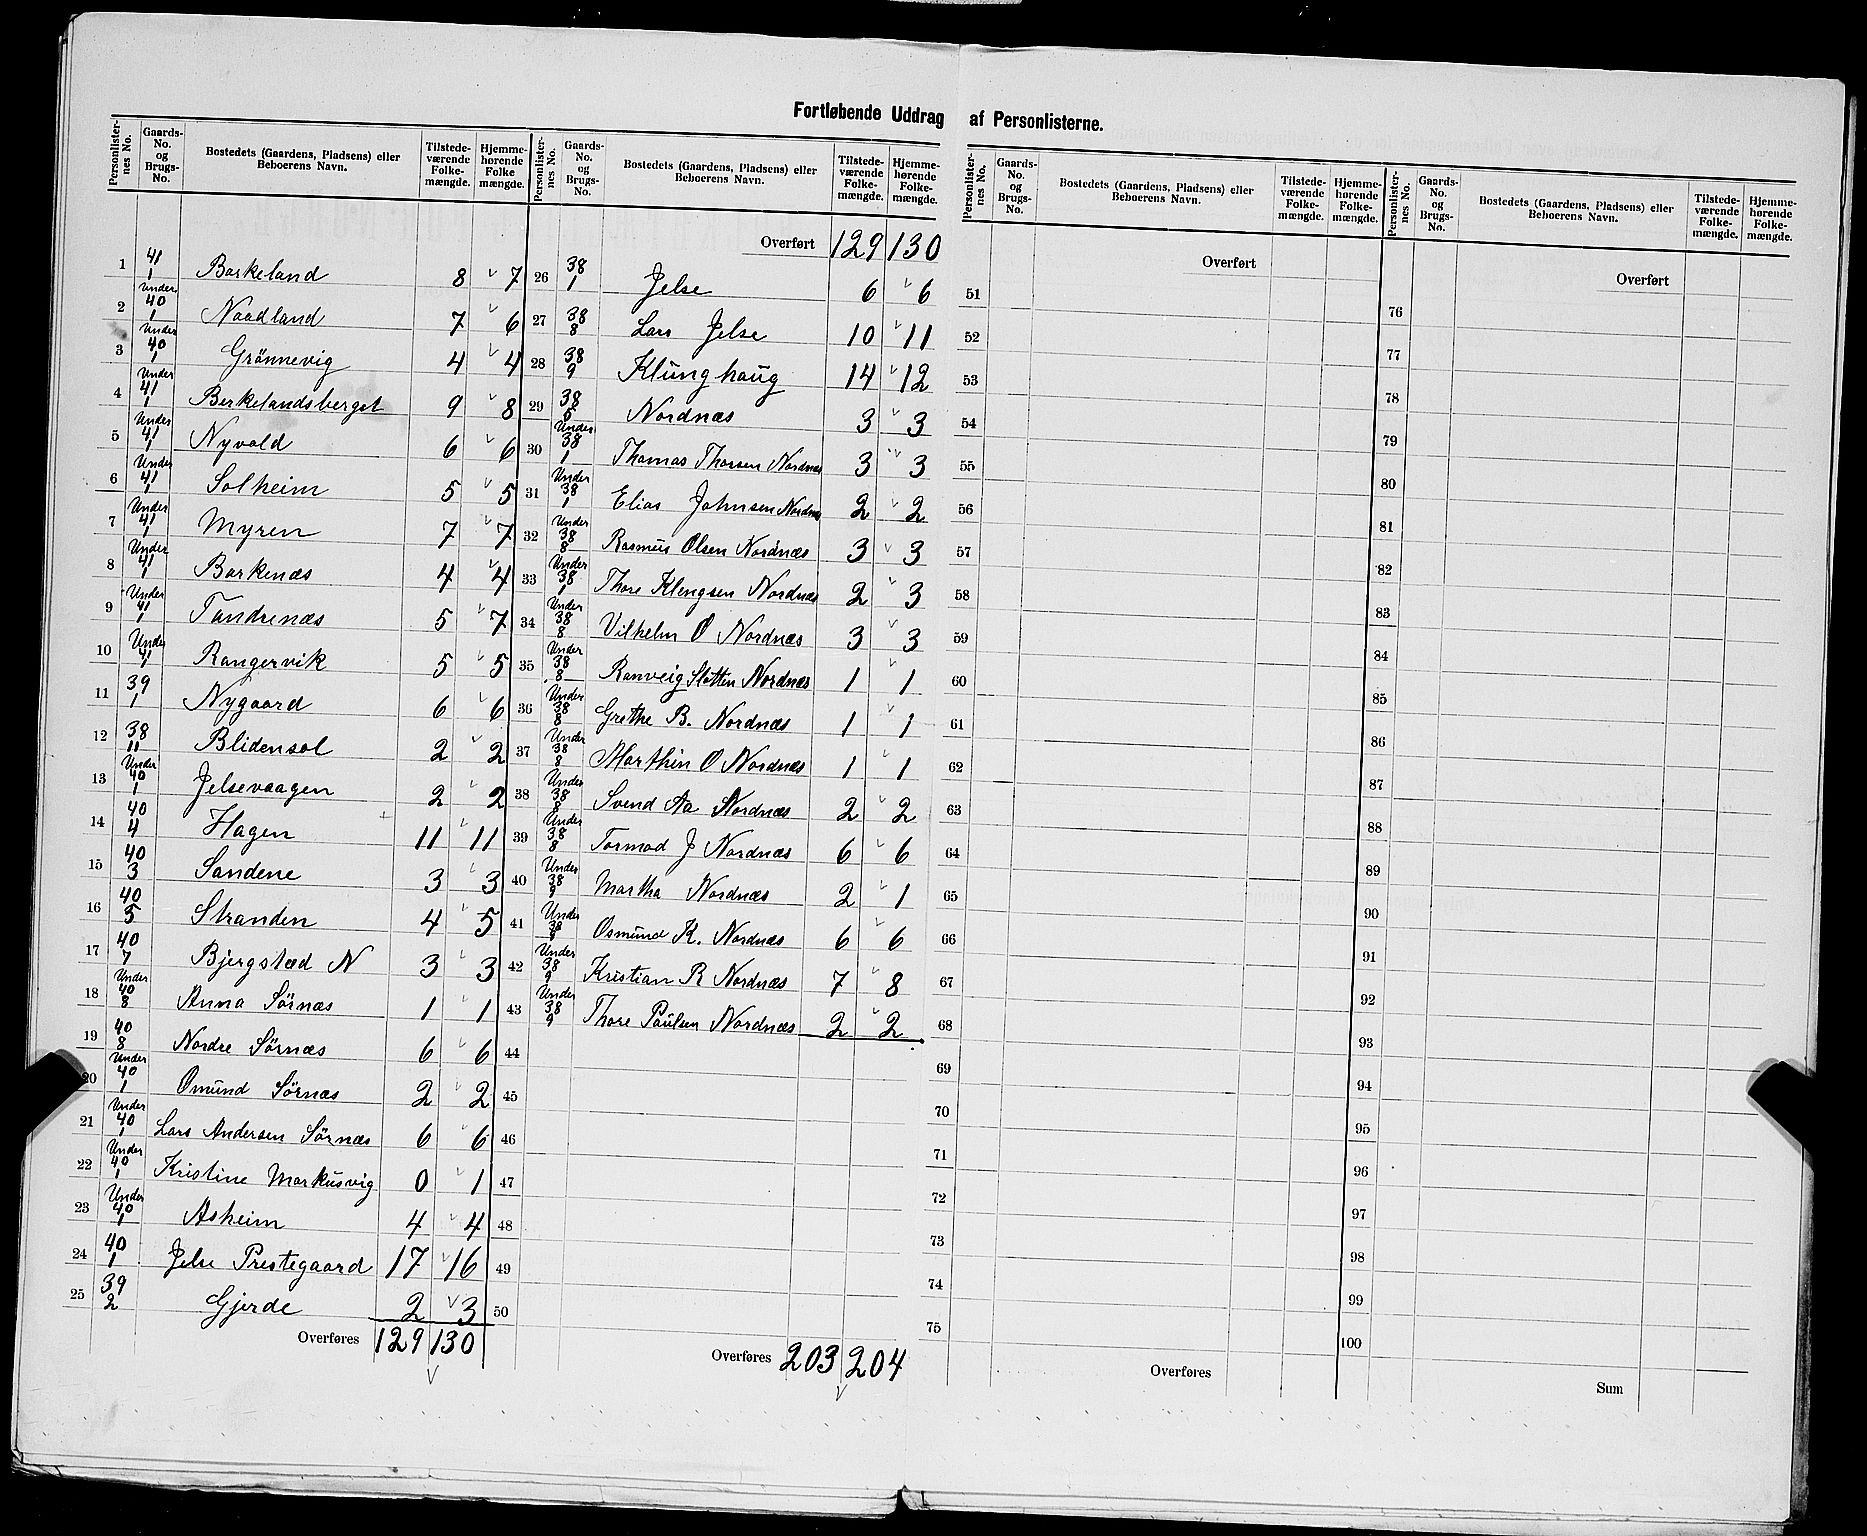 Fortløbende Uddrag af Personlisterne.
Personlister-nes No. | Gaards-No. og Brugs-No. | Bostedets (Gaardens, Pladsens) eller Beboerens Navn. | Tilstede-værende Folke-mængde. | Hjemme-hørende Folke mængde.
1 | 41 1 | Barkeland | 8 | 7
2 | Under 40 1 | Naadland | 7 | 6
3 | Under 40 1 | Grönnevig | 4 | 4
4 | Under 41 1 | Berkelandsberget | 9 | 8
5 | Under 41 1 | Nyvold | 6 | 6
6 | Under 41 1 | Solheim | 5 | 5
7 | Under 41 | Myren | 7 | 7
8 | Under 41 1 | Barkenæs | 4 | 4
9 | Under 41 1 | Tandrenæs | 5 | 7
10 | Under 41 1 | Rangervik | 5 | 5
11 | 39 1 | Nygaard | 6 | 6
12 | 38 11 | Blidensol | 2 | 2
13 | Under 40 1 | Jelsevaagen | 2 | 2
14 | 40 4 | Hagen | 11 | 11
15 | 40 3 | Sandene | 3 | 3
16 | 40 5 | Stranden | 4 | 5
17 | 40 7 | Bjergstæd N | 3 | 3
18 | Under 40 8 | Anna Sörnæs | 1 | 1
19 | 40 8 | Nordre Sörnæs | 6 | 6
20 | Under 40 1 | Omund Sörnæs | 2 | 2
21 | Under 40 1 | Lars Andersen Sörnæs | 6 | 6
22 | Under 40 1 | Kristine Markusvig | 0 | 1
23 | Under 40 1 | Asheim | 4 | 4
24 | 40 1 | Jelse Prestegaard | 17 | 16
25 | 39 2 | Gjerde | 2 | 3
Overføres 129 130
Personlister-nes No. | Gaards-No. og Brugs-No. | Bostedets (Gaardens, Pladsens) eller Beboerens Navn. | Tilstede-værende Folke-mængde. | Hjemme-hørende Folke-mængde.
Overført 129 130
26 | 38 1 | Jelse | 6 | 6
27 | 38 8 | Lars Jelse | 10 | 11
28 | 38 9 | Klunghaug | 14 | 12
29 | 38 5 | Nordnæs | 3 | 3
30 | Under 38 1 | Thomas Thorsen Nordnæs | 3 | 3
31 | Under 38 1 | Elias Johnsen Nordnæs | 2 | 2
32 | Under 38 8 | Rasmus Olsen Nordnæs | 3 | 3
33 | Under 38 1 | Thore Klengsen Nordnæs | 2 | 3
34 | Under 38 8 | Vilhelm O Nordnæs | 3 | 3
35 | Under 38 8 | Ranveig Slotten Nordnæs | 1 | 1
36 | Under 38 8 | Grethe B. Nordnæs | 1 | 1
37 | Under 38 8 | Marthin O Nordnæs | 1 | 1
38 | Under 38 8 | Svend Aa Nordnæs | 2 | 2
39 | Under 38 8 | Tormod J Nordnæs | 6 | 6
40 | Under 38 9 | Martha Nordnæs | 2 | 1
41 | Under 38 9 | Osmund K. Nordnæs | 6 | 6
42 | Under 38 9 | Kristian R Nordnæs | 7 | 8
43 | Under 38 9 | Thore Paulsen Nordnæs | 2 | 2
44
45
46
47
48
49
50
Overføres 203 204
Personlister-nes No. | Gaards-No. og Brugs-No. | Bostedets (Gaardens, Pladsens) eller Beboerens Navn. | Tilstede-værende Folke-mængde. | Hjemme-hørende Folke-mængde.
Overført
51
52
53
54
55
56
57
58
59
60
61
62
63
64
65
66
67
68
69
70
71
72
73
74
75
Overføres
Personlister-nes No. | Gaards-No. og Brugs-No. | Bostedets (Gaardens, Pladsens) eller Beboerens Navn. | Tilstede-værende Folke-mængde. | Hjemme-hørende Folke-mængde.
Overført
76
77
78
79
80
81
82
83
84
85
86
87
88
89
90
91
92
93
94
95
96
97
98
99
100
Sum